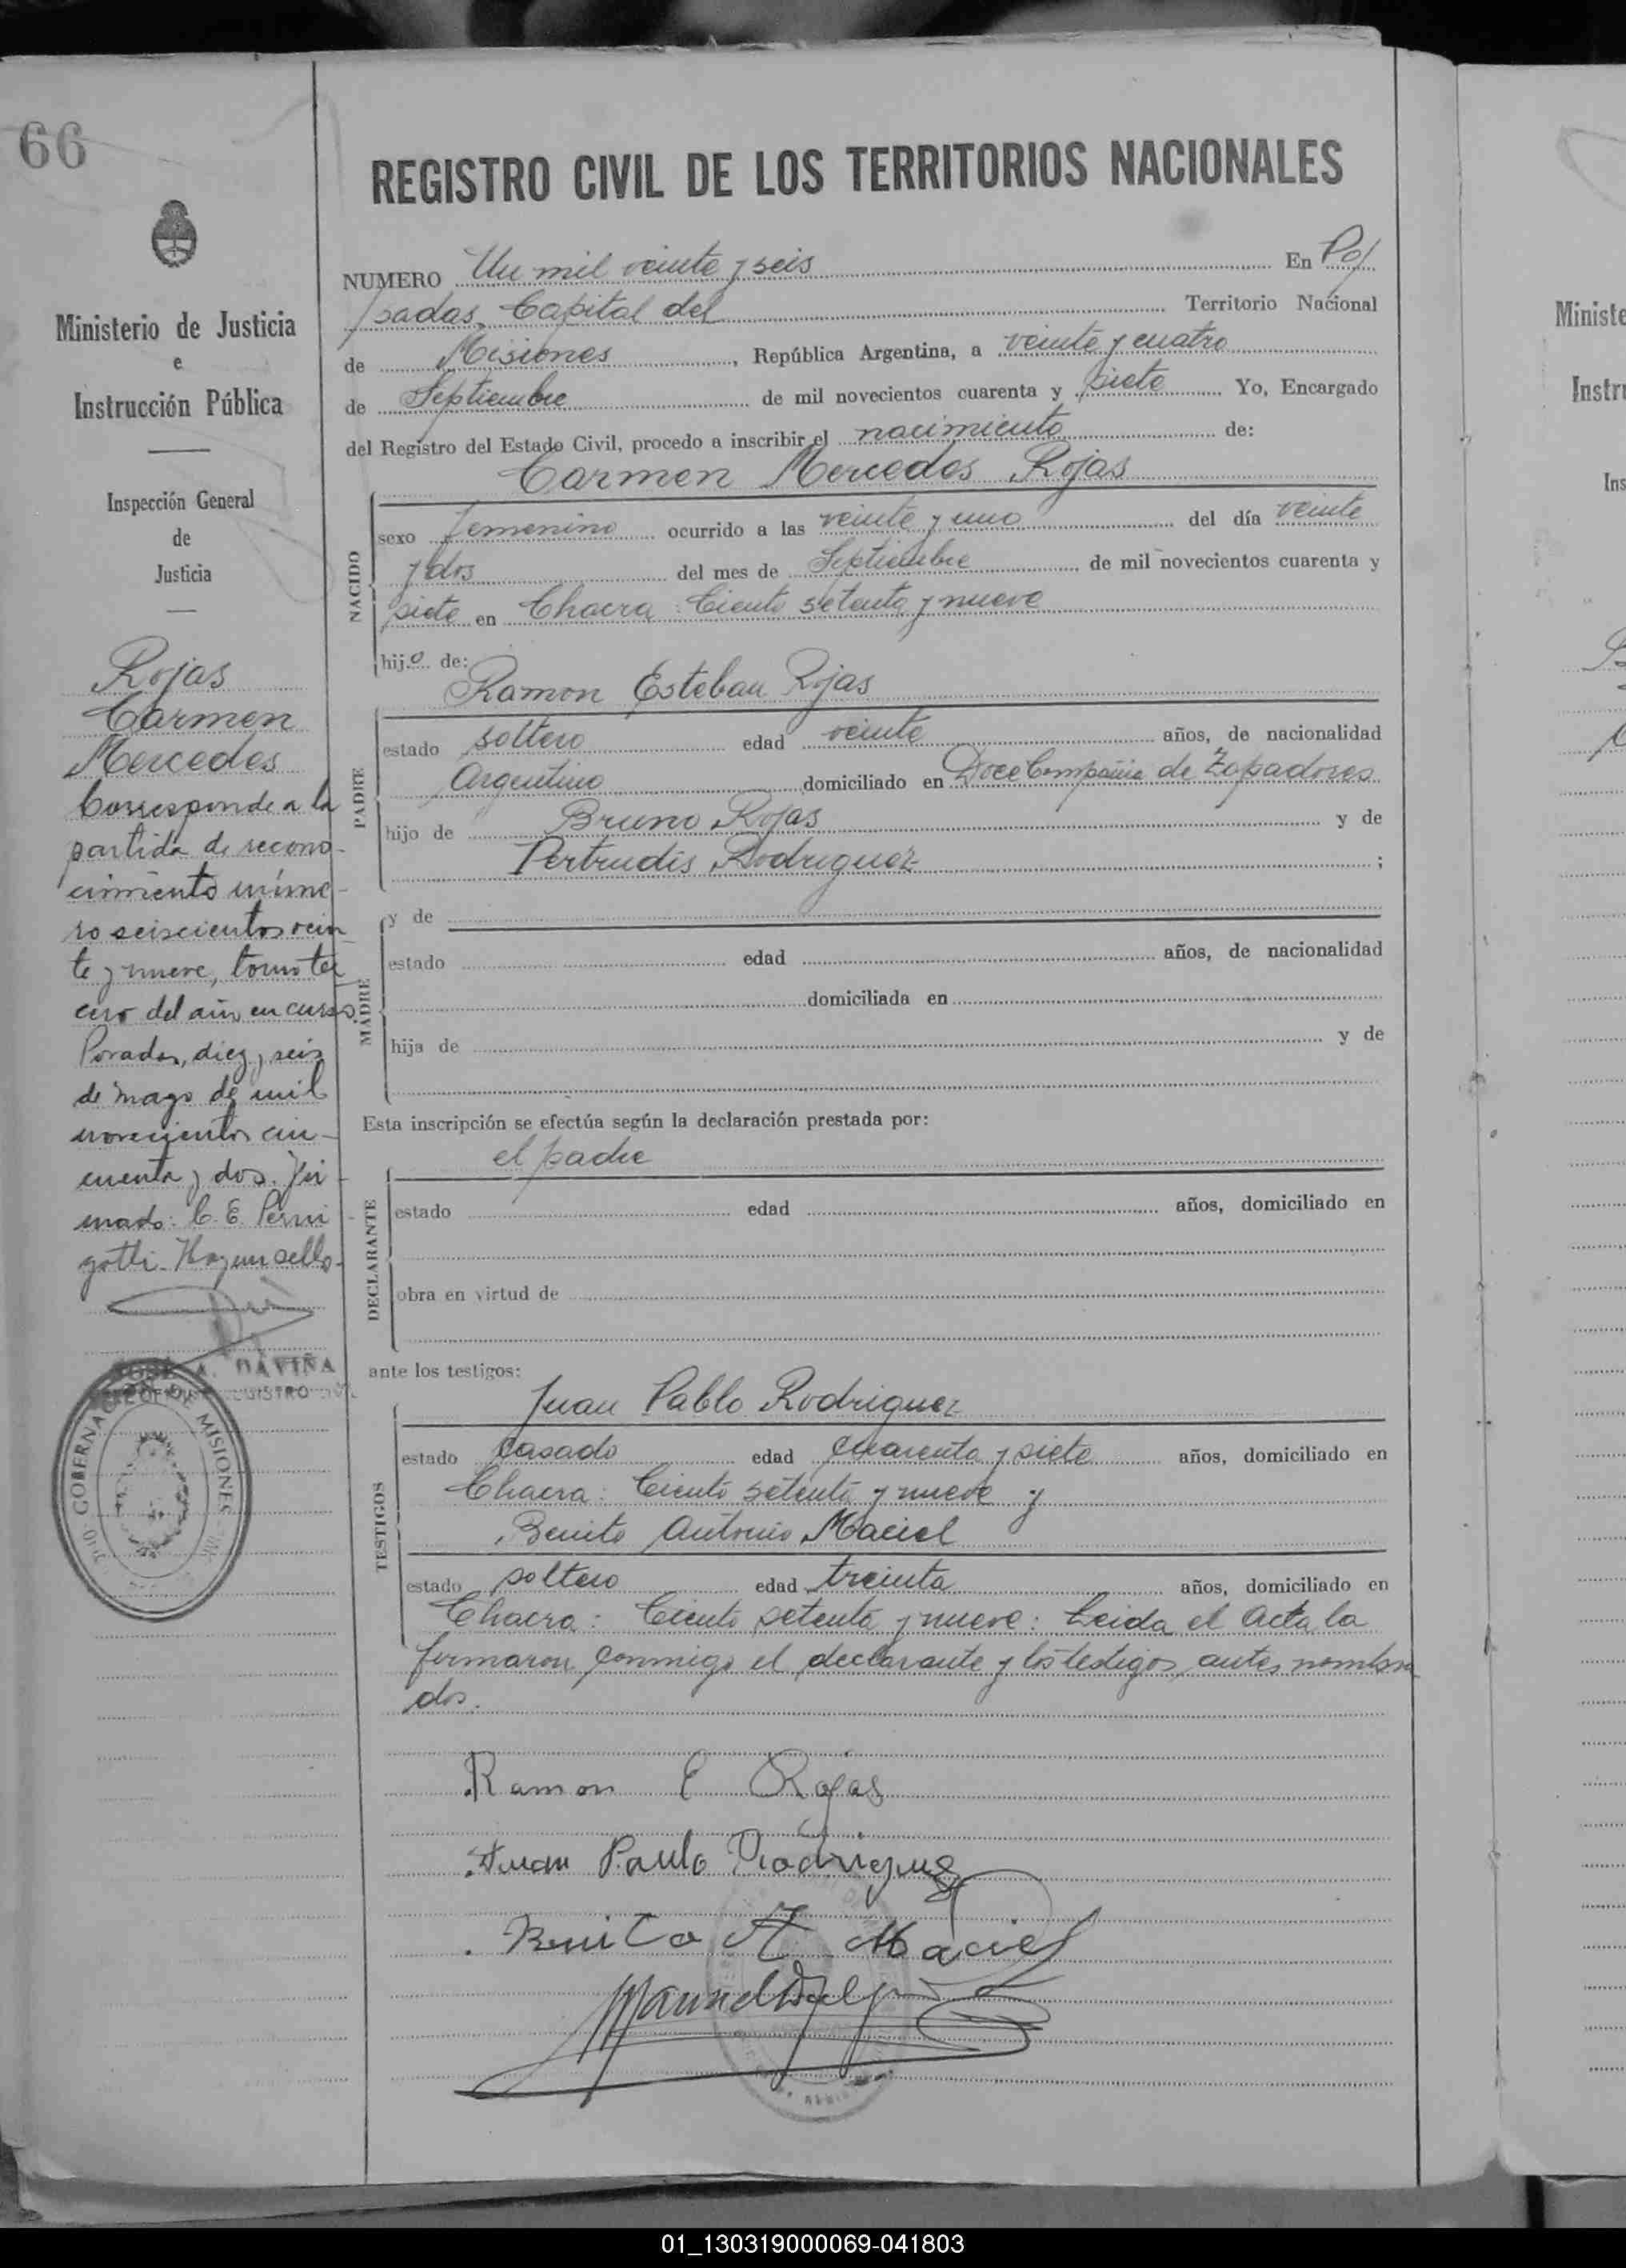 66
Ministerio de Justicia
e
Instrucción Pública
Inspección General
de
Justicia
Rojas
Carmen
Mercedes
Corresponde a la
partida de recono-
cimiento núme-
ro seiscientos vein-
te y nueve, tomo ter
cero del año en curso.
Posadas, diez y seis
de mayo de mil
novecientos cin-
cuenta y dos. Fir-
mado: C. E. Perni
gotti. Hay un sello.
JOSÉ A. DAVIÑA
GOBERNACIÓN DE MISIONES
REGISTRO CIVIL DE LOS TERRITORIOS NACIONALES
NUMERO Un mil veinte y seis En Po/
/sadas, Capital del Territorio Nacional
de Misiones, República Argentina, a veinte y cuatro
de Septiembre de mil novecientos cuarenta y siete Yo, Encargado
del Registro del Estado Civil, procedo a inscribir el nacimiento de:
Carmen Mercedes Rojas
NACIDO
sexo femenino ocurrido a las veinte y uno del día veinte
y dos del mes de Septiembre de mil novecientos cuarenta y
siete en Chacra: Ciento setenta y nueve
hijo de:
Ramon Esteban Rojas
PADRE
estado soltero edad veinte años, de nacionalidad
Argentino domiciliado en Doce Compañia de Zapadores
hijo de Bruno Rojas y de
Pertrudis Rodriguez ;
MADRE
y de
estado edad años, de nacionalidad
domiciliada en
hija de y de
Esta inscripción se efectúa según la declaración prestada por:
el padre
DECLARANTE
estado edad años, domiciliado en
obra en virtud de
ante los testigos:
Juan Pablo Rodriguez
TESTIGOS
estado casado edad cuarenta y siete años, domiciliado en
Chacra: Ciento setenta y nueve y
Benito Antonio Maciel
estado soltero edad treinta años, domiciliado en
Chacra: Ciento setenta y nueve: Leida el Acta la
firmaron conmigo el declarante y los testigos antes nombra
dos.
Ramon E Rojas
Juan Paulo Rodriguez
Benito A Maciel
Ministe
Instru
Ins
01_130319000069-041803